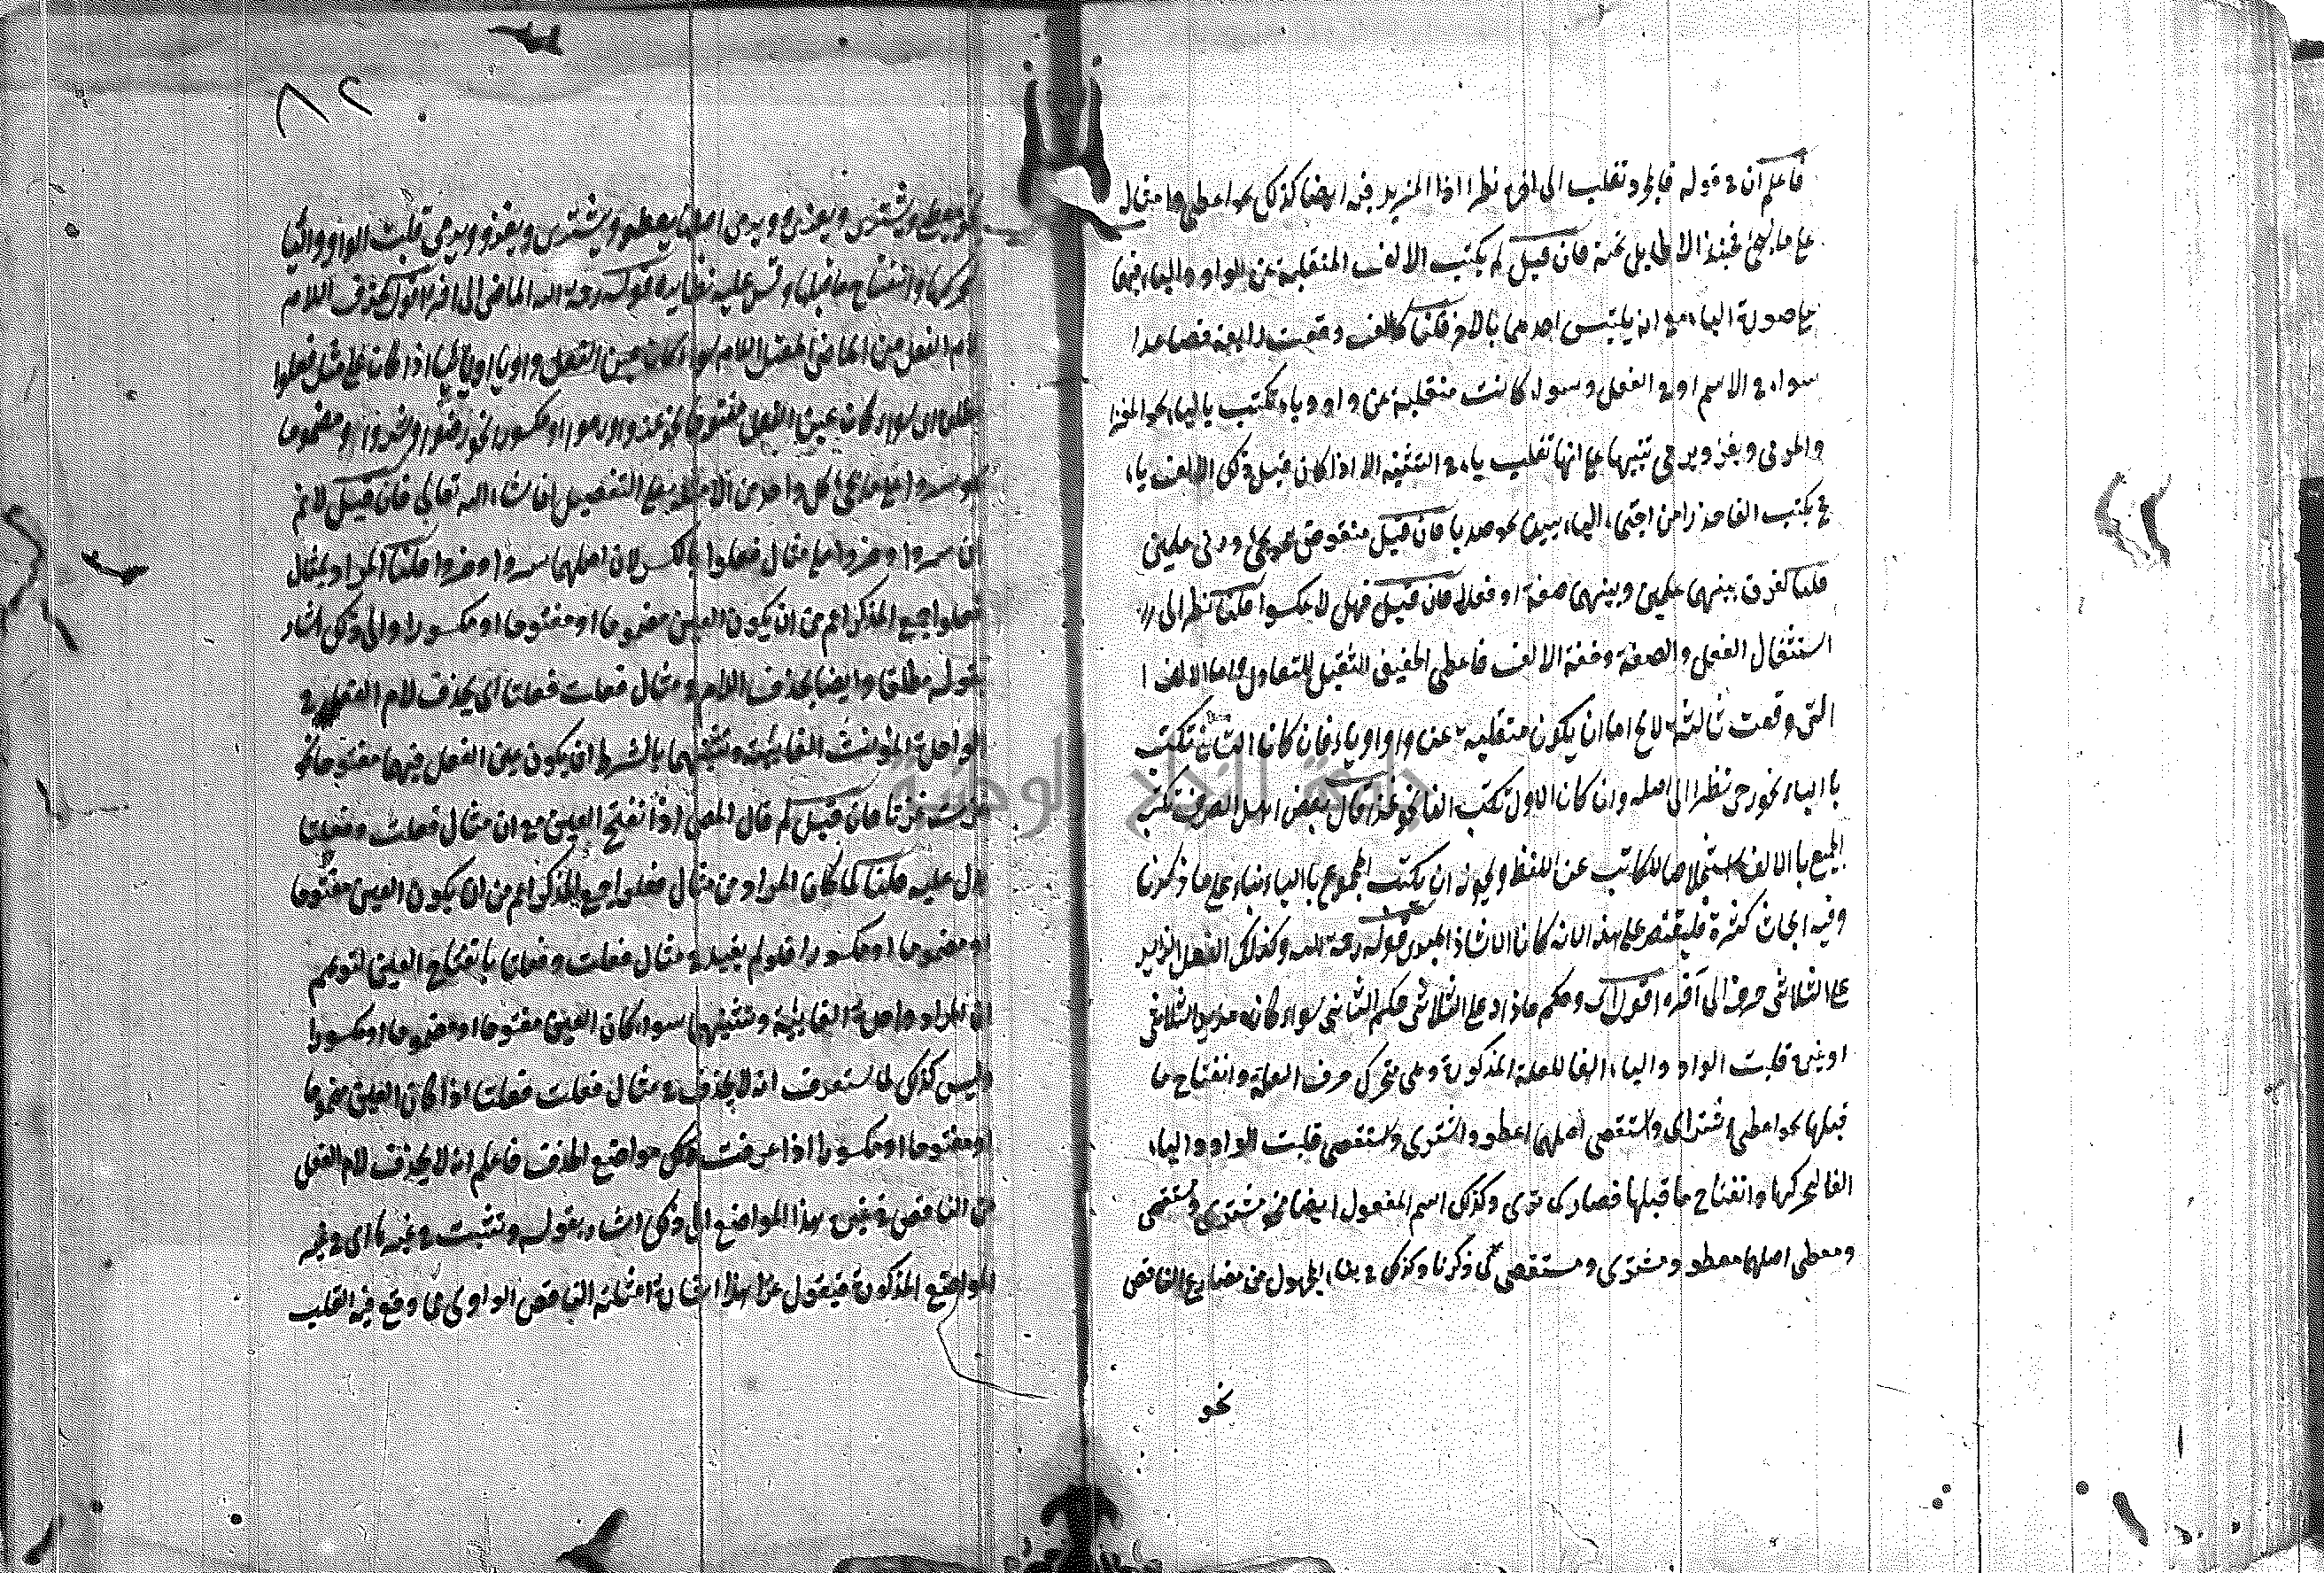 فاعلم ان في قوله وتقلب الى اخره نظرا اذا المزيد فيه ايضا كذلك نحو اعطى مثال
على ما يجئ فحينئذ لا طايل تحته فان قيل لم يكتب الالف المنقلبة عن الواو والياء فيهما
على صورة الياء مع انه يلتبس احدهما بالاخر قلنا كل الف وقعت رابعة فصاعدا
سواء في الاسم او في الفعل وسواء كانت منقلبة عن واو وياء تكتب بالياء نحو المغزا
والمرمى ويغزى ويرمى تنبيها على انها تقلب ياء في التثنية الا اذا كان قبل ذلك الالف ياء
فح يكتب الفا حذرا من اجتماع اليائين نحو صديا فان قيل منقوض بنحو يحيى وريى علمين
قلنا لفرق بينهما علمين وبينهما صفة او فعلا فان قيل فهل لا عكسوا قلنا نظرا الى
استثقال الفعل والصفة وخفة الالف فاعطى الخفيف الثقيل للتعادل واما الالف
التي وقعت ثالثة لا يخ اما ان يكون منقلبة عن واو او ياء فان كان الثاني تكتب
باالياء نحو رحى نظرا الى اصله وان كان الاول تكتب الفا نحو غزا قال بعض اهل الصرف تكتب
الجميع باالالف استخلاصا للكاتب عن اللفظ ويجوز ان يكتب المجموع باالياء بناء على ما ذكرنا
وفيه ابحاث كثيرة فليقتصر على هذا لانه كان الاستاذ قوله رحمة الله وكذلك الفعل الزايد
على الثلاثى حرف الى آخره اقول اى وحكم ما زاد على الثلاثى حكم الثانى سواء كان مزيد الثلاثى
او غيره قلبت الواو والياء الفا للعلة المذكورة وهي تحرك حرف العلة وانفتاح ما
قبلها نحو اعطى واشترى واستقصى اصلها اعطو واشترى واستقصى قلبت الواو والياء
الفا لتحركها وانفتاح ما قبلها فصار كما ترى وكذلك اسم المفعول ايضا نحو مشترى ومستقصى
ومعطى اصلها معطو ومشترى ومستقصى كما ذكرنا وكذلك في بناء المجهول من مضارع الناقص
نحو
٨٢
نحو يعطى ويشترى ويغزى ويرمى اصلها يعطو ويشترى ويغزو ويرمى قلبت الواو والياء
لتحركها وانفتاح ما قبلها وقس عليه نظايره قوله رحمة الله الماضى الى اخره اقول يحذف اللام
لام الفعل من الماضى المعتل اللام سواء كان عين الفعل واويا او يائيا اذا كان على مثل فعلوا
سواء كان عين الفعل مفتوحا نحو غزوا ورموا او مكسورا نحو رضوا او مضموما
نحو سروا على ما يجئ كل واحد من الامثلة على التفصيل ان شاء الله تعالى فان قيل لا نم
ان سروا ومروا على مثال فعلوا لان اصلهما قلنا المراد بمثال
فعلوا جمع المذكر اعم من ان يكون العين مضموما او مفتوحا او مكسورا والى ذلك اشار
بقوله مطلقا وايضا يحذف اللام في مثال فعلت فعلتا اى يحذف لام الفعل في
الواحدة المؤنث الغايبة وتثنيتها بالشرط ان يكون عين الفعل فيهما مفتوحا نحو
غزت غزتا فان قيل لم قال المص اذا انفتح العين مع ان مثال فعلت وفعلتا
يدل عليه قلنا لما كان المراد من مثال فعلوا جمع المذكر اعم من ان يكون العين مفتوحا
او مضموما او مكسورا فلو لم يقيد في مثال فعلت وفعلتا بانفتاح العين لتوهم
ان المراد واحدة الغايبة وتثنيتها سواء كان العين مفتوحا او مضموما او مكسورا
وليس كذلك لما ستعرف انه لا يحذف في مثال فعلت فعلتا اذا كان العين مضموما
او مفتوحا او مكسورا اذا عرفت ذلك مواضع الحذف فاعلم انه لا يحذف لام الفعل
من الناقص في غير هذا المواضع الى ذلك اشار بقوله وتثبت في غيرها اى في غير
المواضع المذكورة فيقول غزا هذا اشارة امثلة الناقص الواوى مما وقع فيه القلب